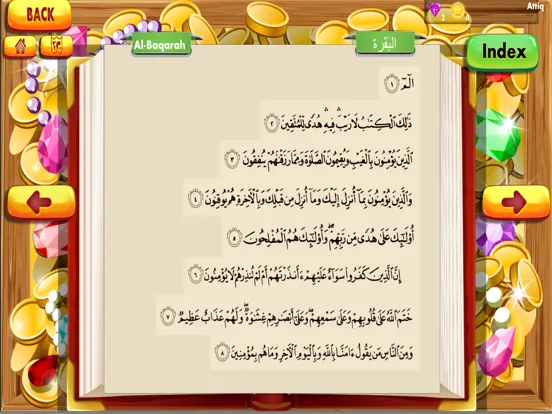 BACK
Attiq
Al-Baqarah
البَقَرَة
Index
الٓمٓ ١
ذَٰلِكَ ٱلْكِتَٰبُ لَا رَيْبَ ۛ فِيهِ ۛ هُدًى لِّلْمُتَّقِينَ ٢
ٱلَّذِينَ يُؤْمِنُونَ بِٱلْغَيْبِ وَيُقِيمُونَ ٱلصَّلَوٰةَ وَمِمَّا رَزَقْنَٰهُمْ يُنفِقُونَ ٣
وَٱلَّذِينَ يُؤْمِنُونَ بِمَآ أُنزِلَ إِلَيْكَ وَمَآ أُنزِلَ مِن قَبْلِكَ وَبِٱلْءَاخِرَةِ هُمْ يُوقِنُونَ ٤
أُو۟لَٰٓئِكَ عَلَىٰ هُدًى مِّن رَّبِّهِمْ ۖ وَأُو۟لَٰٓئِكَ هُمُ ٱلْمُفْلِحُونَ ٥
إِنَّ ٱلَّذِينَ كَفَرُوا۟ سَوَآءٌ عَلَيْهِمْ ءَأَنذَرْتَهُمْ أَمْ لَمْ تُنذِرْهُمْ لَا يُؤْمِنُونَ ٦
خَتَمَ ٱللَّهُ عَلَىٰ قُلُوبِهِمْ وَعَلَىٰ سَمْعِهِمْ ۖ وَعَلَىٰٓ أَبْصَٰرِهِمْ غِشَٰوَةٌ ۖ وَلَهُمْ عَذَابٌ عَظِيمٌ ٧
وَمِنَ ٱلنَّاسِ مَن يَقُولُ ءَامَنَّا بِٱللَّهِ وَبِٱلْيَوْمِ ٱلْءَاخِرِ وَمَا هُم بِمُؤْمِنِينَ ٨